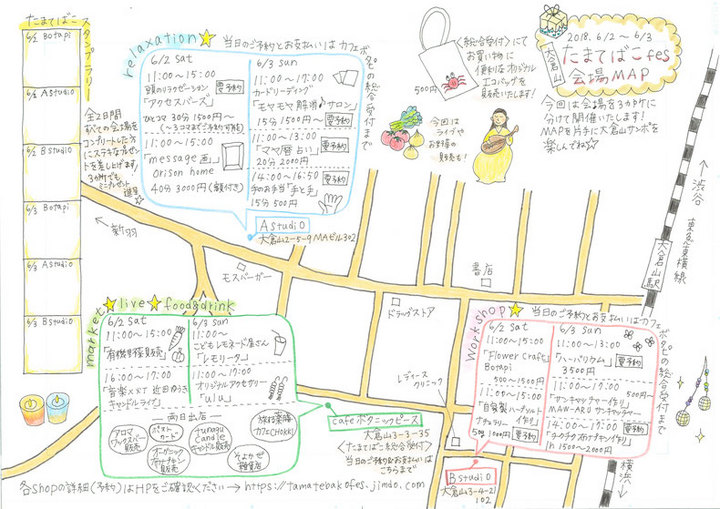 たまてばこスタンプラリー
6/2 Botapi
6/2 Astudio
6/2 Bstudio
6/3 Botapi
6/3 Astudio
6/3 Bstudio
全2日間
すべての会場を
コンプリートした方に
ステキなプレゼント
を差し上げます。
3ヶ所でも
ミニプレゼント
進呈☆
relaxation☆
当日のご予約とお支払いは カフェボタピの総合受付まで
6/2 Sat
11:00〜15:00
頭のリラクゼーション
要予約
「アクセスバーズ」
ひとコマ 30分 1500円〜
11:00〜15:00
「message画」
Orison home
40分 3000円(額付き)
6/3 Sun
11:00〜17:00
カードリーディング
「モヤモヤ解消♪サロン」
15分 1500円〜
要予約
11:00〜13:00
「ママ暦占い」
要予約
20分 2000円
14:00〜16:50
要予約
手のお手当「手と手」
15分 500円
Astudio
大倉山2-5-9 MAビル302
500円
<総合受付>にて
お買い物に
便利なオリジナル
エコバッグを
販売いたします!
今回は
ライブや
お野菜の
販売も!
2018. 6/2〜6/3
大倉山
たまてばこfes
会場MAP
今回は会場を3カ所に
分けて開催いたします!
MAPを片手に大倉山サンポを
楽しんでね☆
→渋谷
東急東横線
大倉山駅
横浜
←新羽
モスバーガー
書店
ドラッグストア
レディース
クリニック
market☆live☆food&drink
6/2 Sat
11:00〜15:00
「有機野菜販売」
16:00〜17:00
「音楽×灯 近田ゆうき
キャンドルライブ」
6/3 Sun
11:00〜
こどもレモネード屋さん
「レモリーター」
11:00〜17:00
オリジナルアクセサリー
「ulu」
両日出店
アロマ
ワックスバー
販売
ポスト
カード
tunagu
candle
キャンドル販売
旅する薬膳
カフェCHOKKI
オーガニック
販売
そよかぜ
雑貨店
cafeボタニックピース
大倉山3-3-35
<たまてばこ総合受付>
当日のご予約&お支払いは
こちらまで
workshop☆
当日のご予約とお支払いはカフェボタピの総合受付まで
6/2 Sat
11:00〜15:00
「Flower Craft」
Botapi
500〜1500円
11:00〜15:00
「自家製ハーブソルト
作り」
ナチュラリー
500円
要予約
6/3 Sun
11:00〜13:00
「ハーバリウム」
要予約
3500円
11:00〜17:00
「サンキャッチャー作り」
MAW-ARU サンキャッチャー
14:00〜17:00
要予約
1h 1500〜2000円
Bstudio
大倉山3-4-21
102
各Shopの詳細(予約)はHPをご確認ください→https://tamatebakofes.jimdo.com